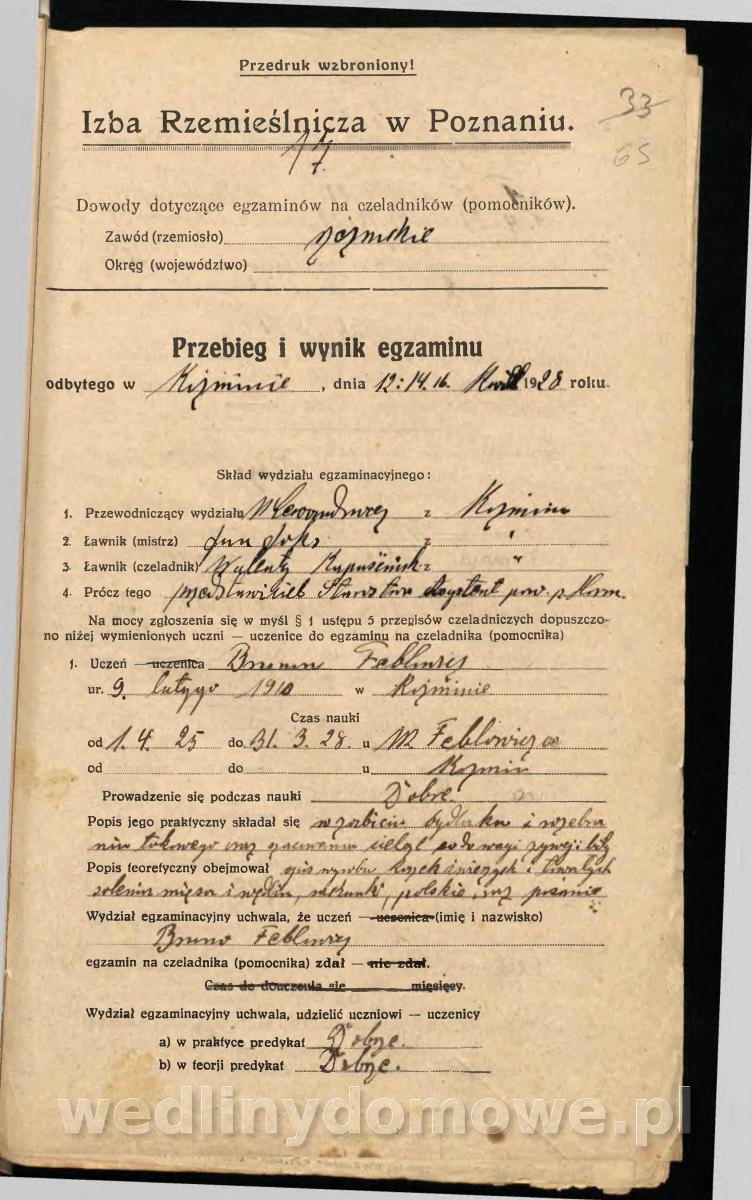 Przedruk wzbroniony!
33
Izba Rzemieślnicza w Poznaniu.
17.
65
Dowody dotyczące egzaminów na czeladników (pomocników).
Zawód (rzemiosło)
Okręg (województwo)
Przebieg i wynik egzaminu
odbytego w Koźminie, dnia 12: 14. 16. 1928 roku.
Skład wydziału egzaminacyjnego:
1. Przewodniczący wydziału z Koźmina
2. Ławnik (mistrz) Jan z "
3. Ławnik (czeladnik) Walenty z "
4. Prócz tego Starostwa asystent pow. z
Na mocy zgłoszenia się w myśl § 1 ustępu 5 przepisów czeladniczych dopuszczo-
no niżej wymienionych uczni — uczenice do egzaminu na czeladnika (pomocnika)
1. Uczeń — uczenica
ur. 9. lutego 1910 w Koźminie
Czas nauki
od 1. 4. 25 do 31. 3. 28. u
od do u Koźmin
Prowadzenie się podczas nauki Dobre.
Popis jego praktyczny składał się w zabiciu bydlaka i
żywej i bitej
Popis teoretyczny obejmował opis wyrobu świeżych i trwałych
solenia mięsa i wędlin, rachunki, polskie, oraz pisanie
Wydział egzaminacyjny uchwala, że uczeń — uczenica (imię i nazwisko)
Bruno
egzamin na czeladnika (pomocnika) zdał — nie zdał.
Czas do douczenia się miesięcy.
Wydział egzaminacyjny uchwala, udzielić uczniowi — uczenicy
a) w praktyce predykat Dobrze.
b) w teorji predykat Dobrze.
wedlinydomowe.pl